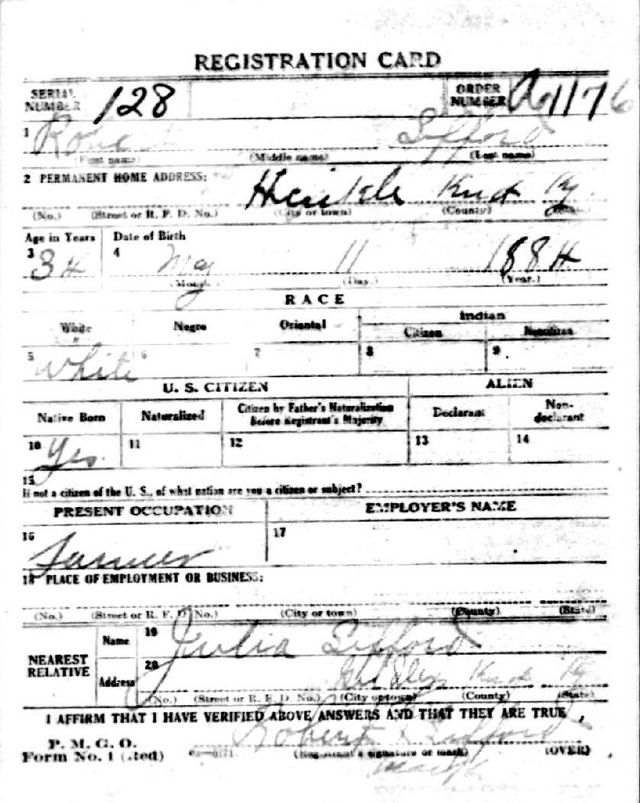 REGISTRATION CARD
SERIAL NUMBER 128 ORDER NUMBER A 1176
1 Robert Lefford
(First name) (Middle name) (Last name)
2 PERMANENT HOME ADDRESS:
Heinkle Knox Ky.
(No.) (Street or R. F. D. No.) (City or town) (County) (State)
Age in Years Date of Birth
3 34 4 May 11 1884
(Month.) (Day.) (Year.)
RACE
White Negro Oriental Indian
Citizen Noncitizen
5 White 6 7 8 9
U. S. CITIZEN ALIEN
Native Born Naturalized Citizen by Father's Naturalization Before Registrant's Majority Declarant Non-declarant
10 Yes. 11 12 13 14
15
If not a citizen of the U. S., of what nation are you a citizen or subject?
PRESENT OCCUPATION EMPLOYER'S NAME
16 Farmer 17
18 PLACE OF EMPLOYMENT OR BUSINESS:
(No.) (Street or R. F. D. No.) (City or town) (County) (State)
NEAREST RELATIVE Name 19 Julia Lefford
Address 20 Knox Ky
(No.) (Street or R. F. D. No.) (City or town) (County) (State)
I AFFIRM THAT I HAVE VERIFIED ABOVE ANSWERS AND THAT THEY ARE TRUE,
P. M. G. O.
Form No. 1 (Red) Robert Lefford
(Registrant's signature or mark) (OVER)
mark